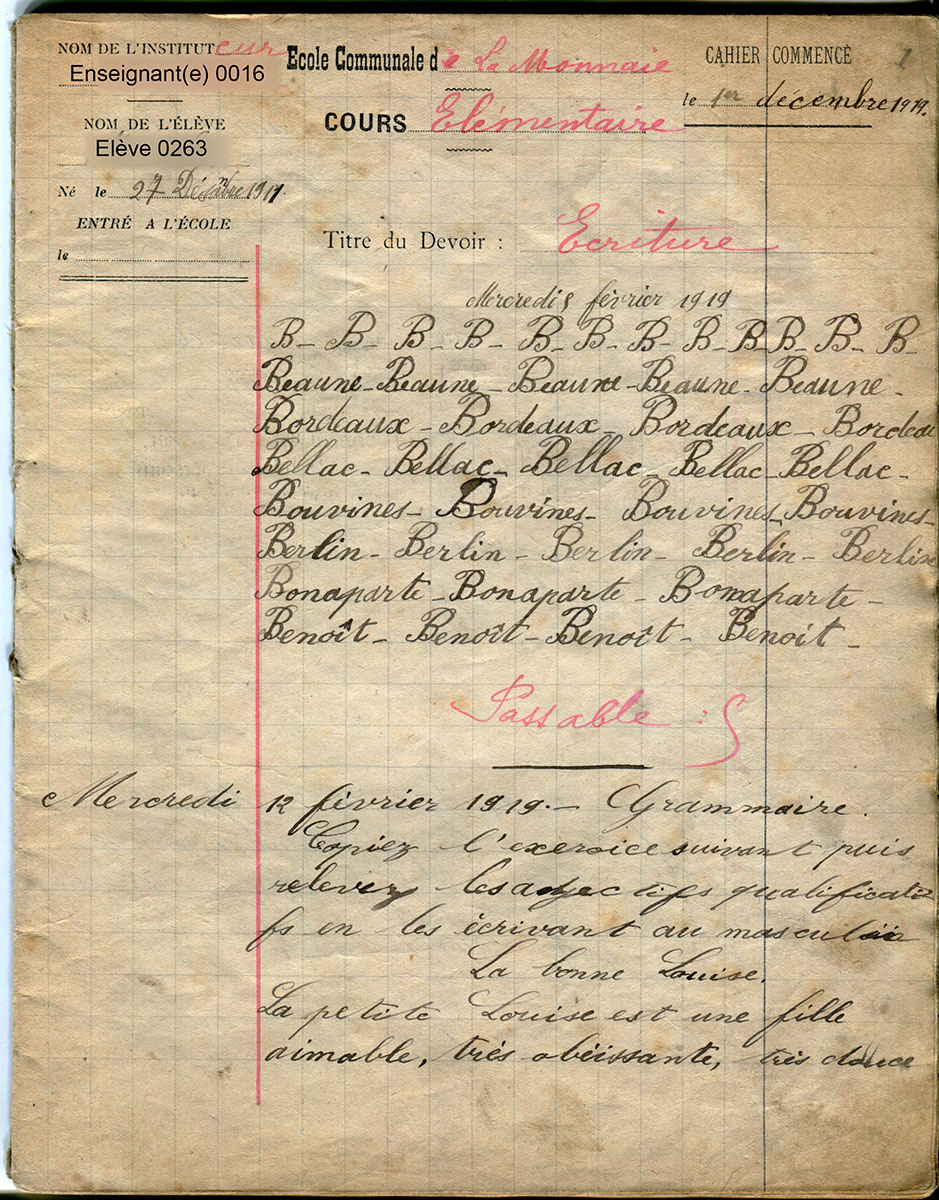 NOM DE L'INSTITUTeur
Enseignant(e) 0016
NOM DE L'ÉLÈVE
Elève 0263
Né le 27 Décembre 1911
ENTRÉ A L'ÉCOLE
le
Ecole Communale de La Monnaie
COURS Elémentaire
CAHIER COMMENCÉ 1
le 1er décembre 1919.
Titre du Devoir : Ecriture
Mercredi 5 février 1919
B - B - B - B - B - B - B - B - B - B - B - B -
Beaune - Beaune - Beaune - Beaune - Beaune -
Bordeaux - Bordeaux - Bordeaux - Bordeau
Bellac - Bellac - Bellac - Bellac - Bellac -
Bouvines - Bouvines - Bouvines - Bouvines -
Berlin - Berlin - Berlin - Berlin - Berlin
Bonaparte - Bonaparte - Bonaparte -
Benoît - Benoît - Benoît - Benoit -
Passable : 5
Mercredi 12 février 1919. - Grammaire.
Copiez l'exersice suivant puis
relevez les adjectifs qualificati
fs en les écrivant au masculin
La bonne Louise.
La petite Louise est une fille
aimable, très obéissante, très douce